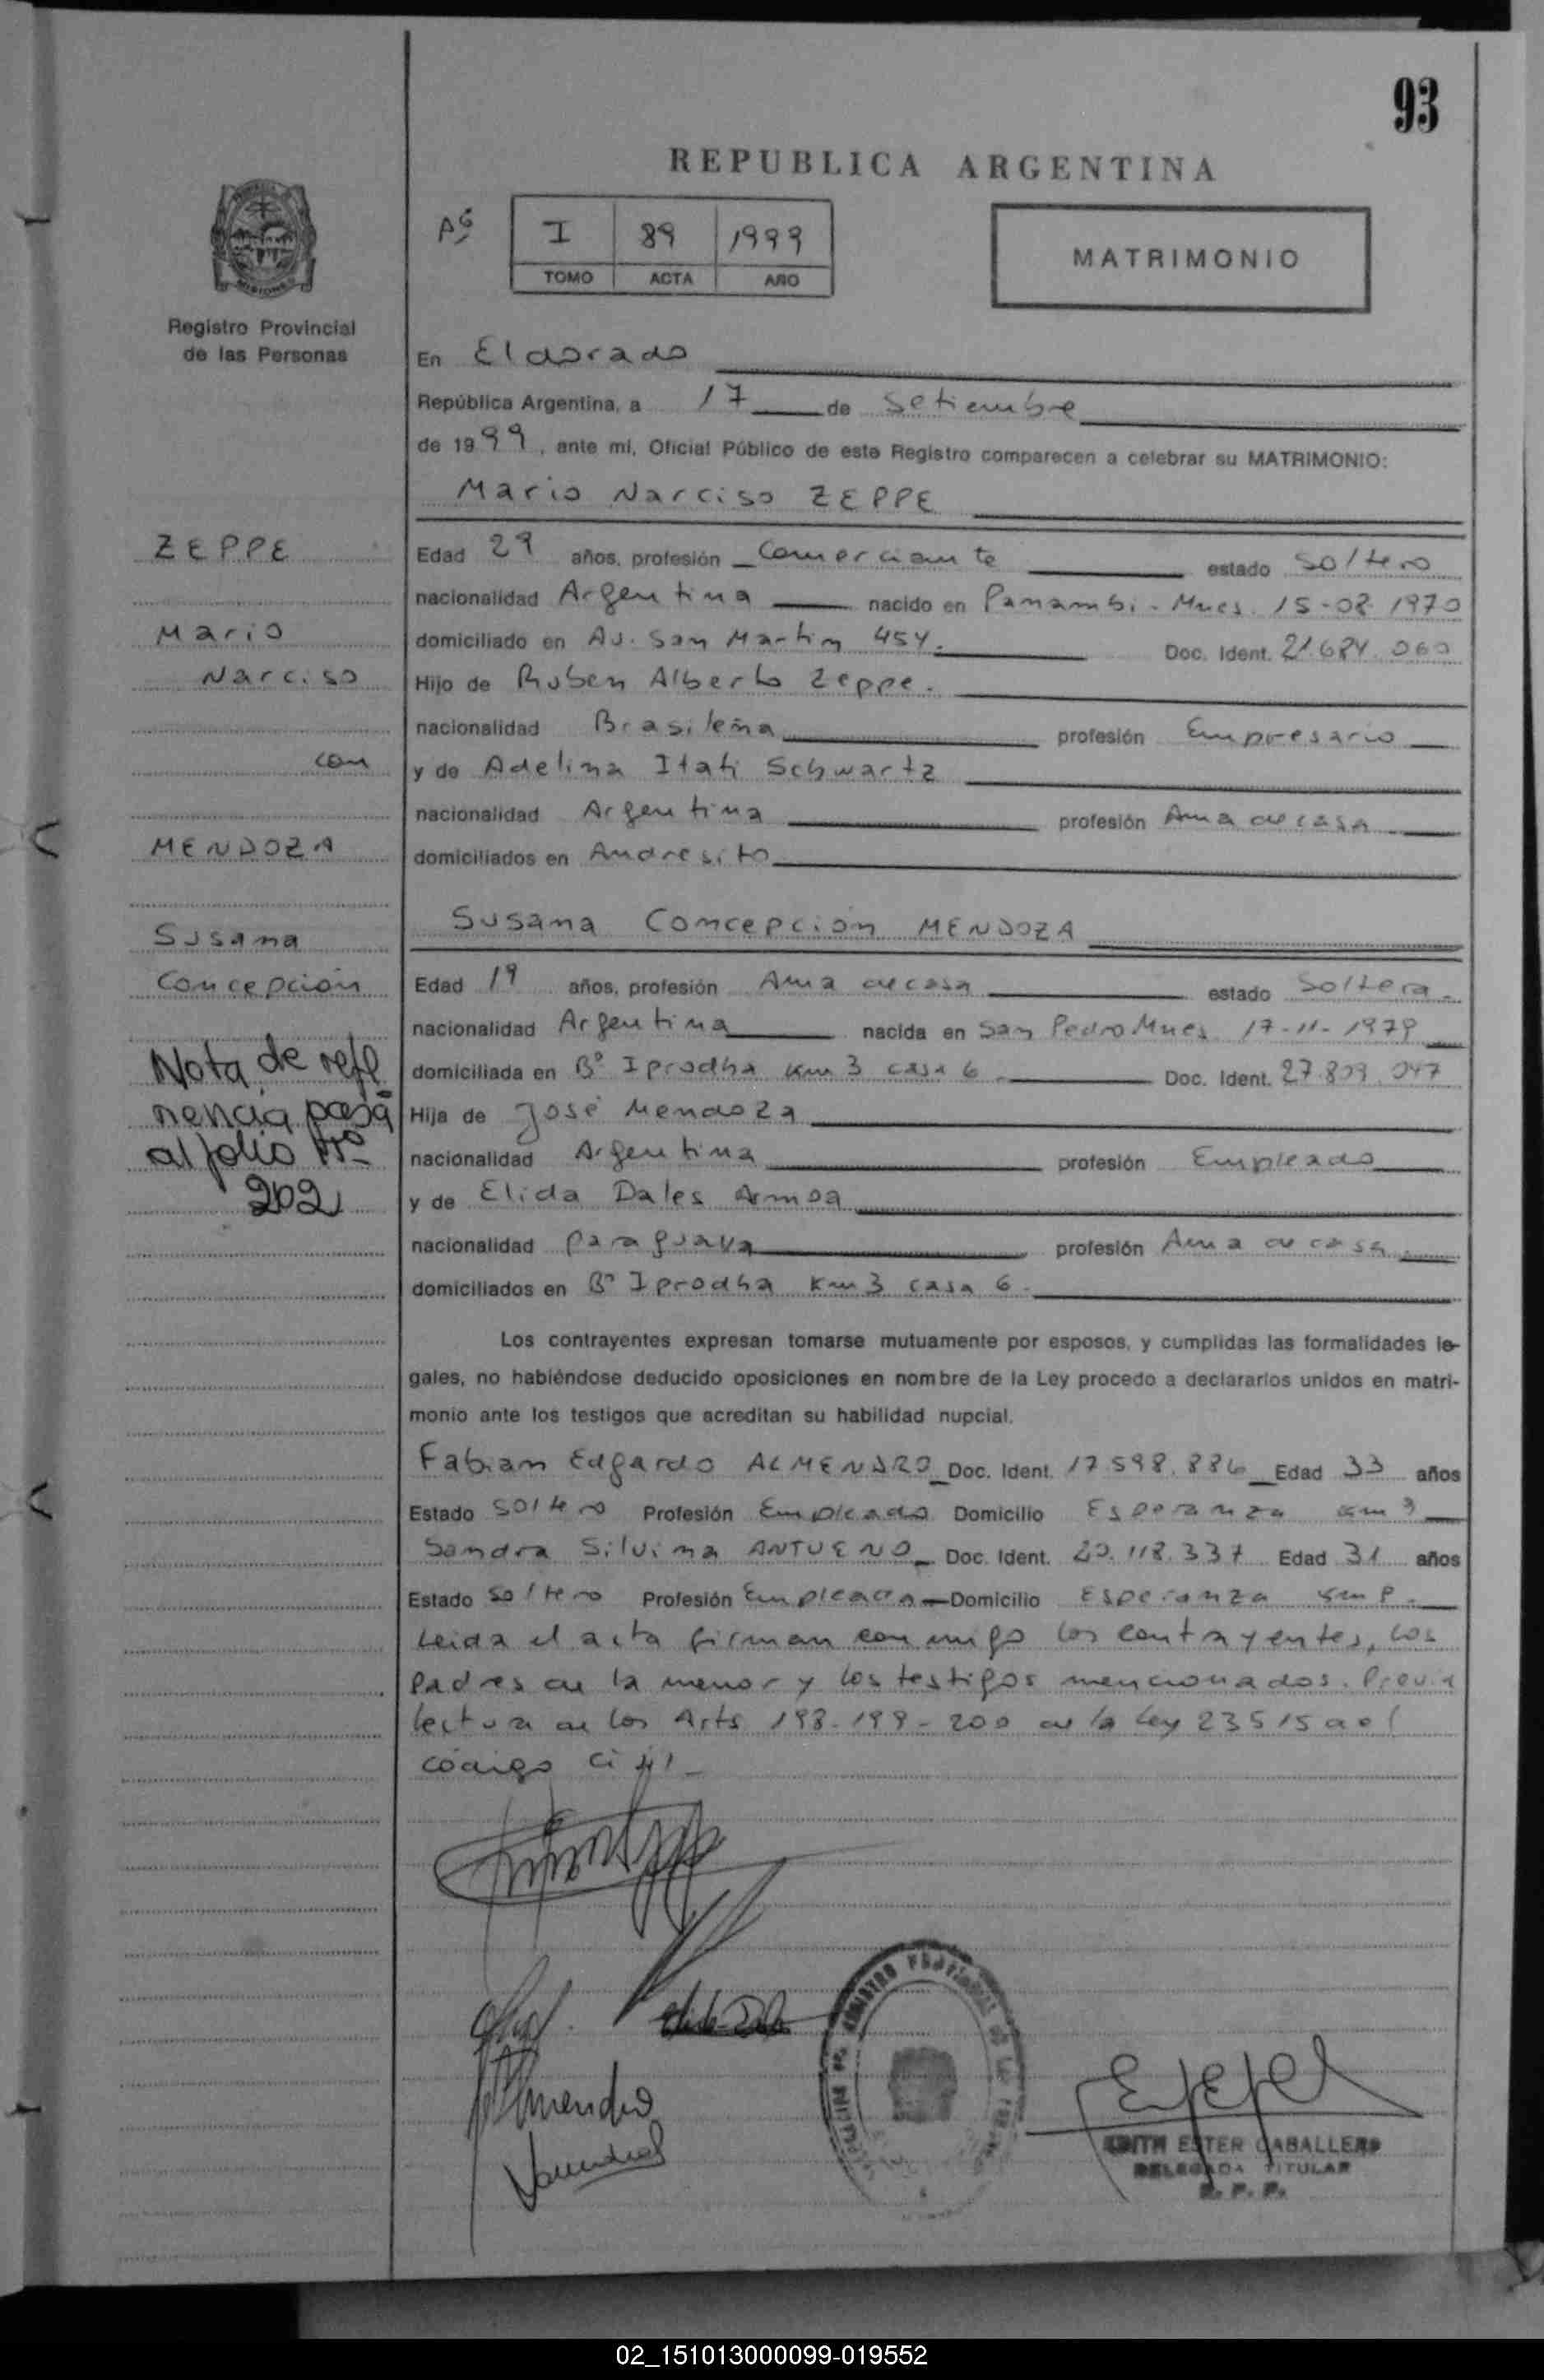 93
REPUBLICA ARGENTINA
I 89 1999
TOMO ACTA AÑO
MATRIMONIO
Registro Provincial
de las Personas
En Eldorado
República Argentina, a 17 de Setiembre
de 1999, ante mí, Oficial Público de este Registro comparecen a celebrar su MATRIMONIO:
Mario Narciso ZEPPE
ZEPPE
Mario
Narciso
con
MENDOZA
Susana
Concepción
Nota de refe
rencia pasa
al folio Nº
202
Edad 29 años, profesión Comerciante estado Soltero
nacionalidad Argentina nacido en Panambi - Mnes. 15-02-1970
domiciliado en Av. San Martin 454. Doc. Ident. 21.684.060
Hijo de Ruben Alberto Zeppe.
nacionalidad Brasileña profesión Empresario
y de Adelina Itati Schwartz
nacionalidad Argentina profesión Ama de casa
domiciliados en Andresito
Susana Concepción MENDOZA
Edad 19 años, profesión Ama de casa estado Soltera.
nacionalidad Argentina nacida en San Pedro Mnes 17-11-1979
domiciliada en Bº Iprodha Km 3 casa 6 Doc. Ident. 27.809.047
Hija de José Mendoza
nacionalidad Argentina profesión Empleado
y de Elida Dales Armoa
nacionalidad paraguaya profesión Ama de casa
domiciliados en Bº Iprodha Km 3 casa 6.
Los contrayentes expresan tomarse mutuamente por esposos, y cumplidas las formalidades le-
gales, no habiéndose deducido oposiciones en nombre de la Ley procedo a declararlos unidos en matri-
monio ante los testigos que acreditan su habilidad nupcial.
Fabian Edgardo ALMENDRO Doc. Ident. 17.598.886 Edad 33 años
Estado Soltero Profesión Empleado Domicilio Esperanza Km 3
Sandra Silvina ANTUENO Doc. Ident. 20.118.337 Edad 31 años
Estado Soltero Profesión Empleada Domicilio Esperanza Km
Leida el acta firman conmigo los contrayentes, los
Padres de la menor y los testigos mencionados. Previa
lectura de los Arts 198-199-200 de la Ley 23515 del
código civil
EDITH ESTER CABALLERO
DELEGADA TITULAR
R. P. P.
02_151013000099-019552